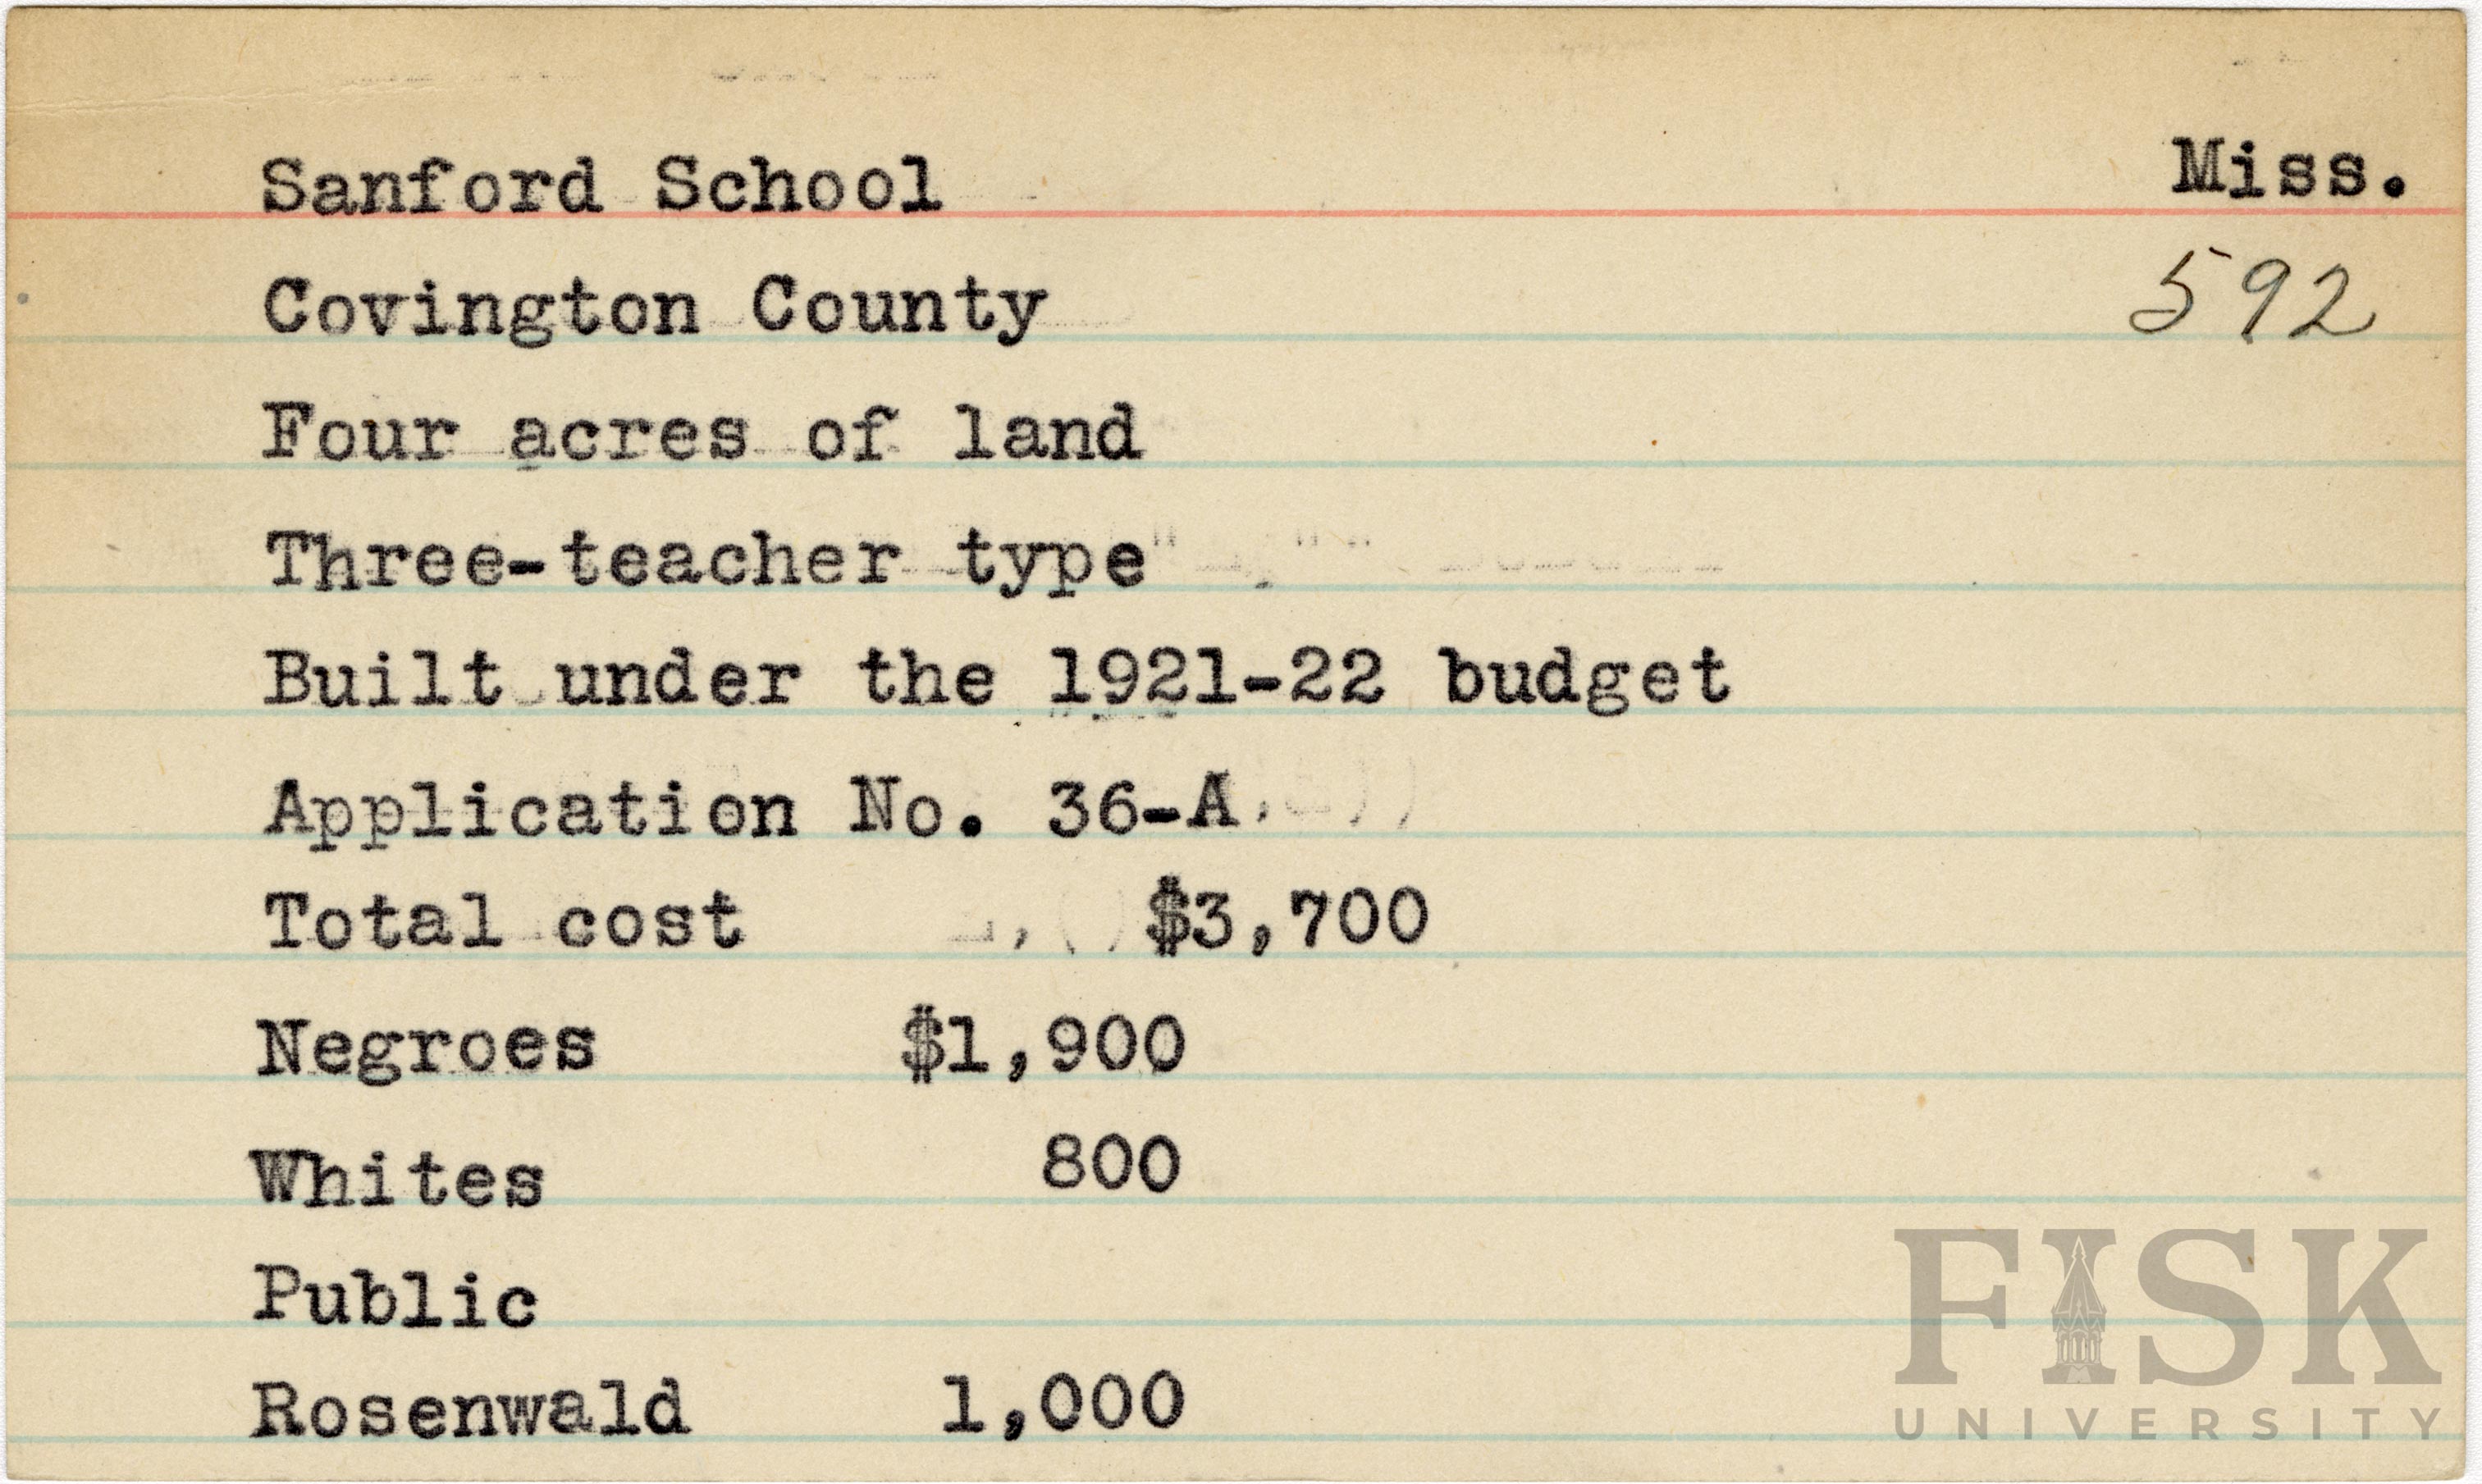 Sanford School Miss.
Covington County 592
Four acres of land
Three-teacher type
Built under the 1921-22 budget
Application No. 36-A
Total cost $3,700
Negroes $1,900
Whites 800
Public
Rosenwald 1,000
FISK
UNIVERSITY